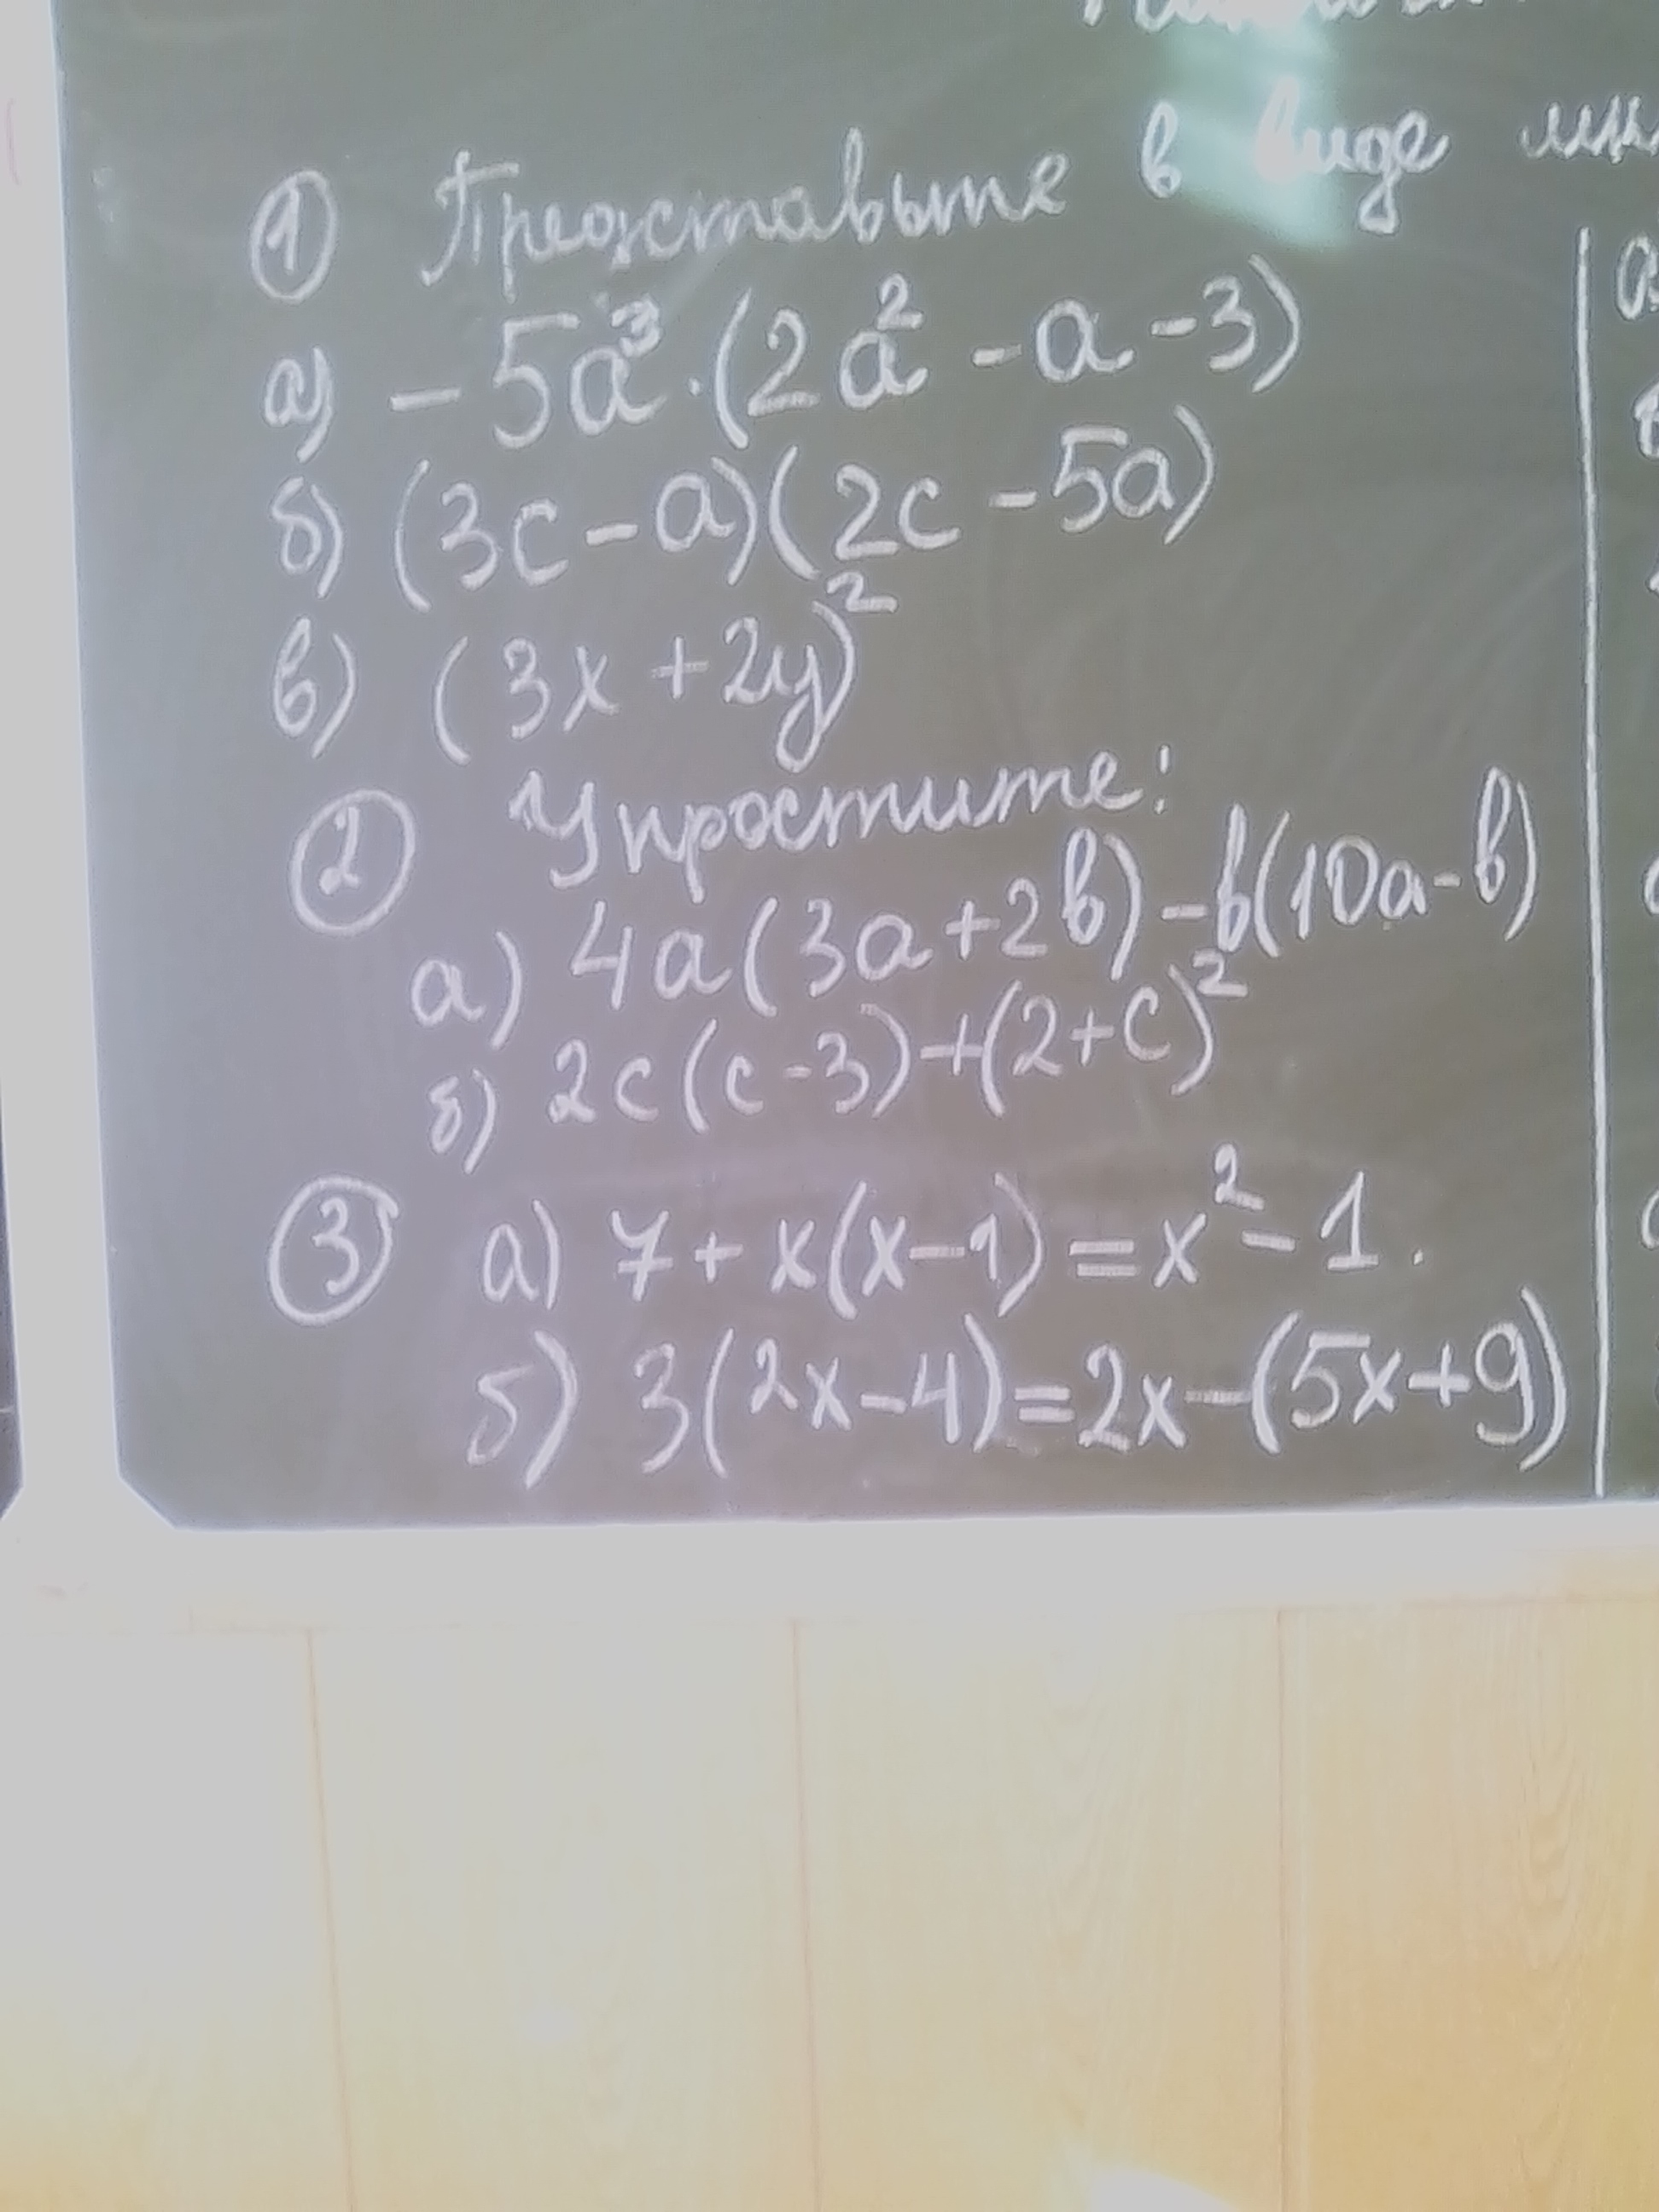 ① Представьте в виде
а) -5a³·(2a² - a - 3)
б) (3c - a)(2c - 5a)
в) (3x + 2y)²
② Упростите:
а) 4a(3a+2b) - b(10a - b)
б) 2c(c-3)+(2+c)²
③ а) 7 + x(x-1) = x² - 1.
б) 3(2x-4)=2x-(5x+9)